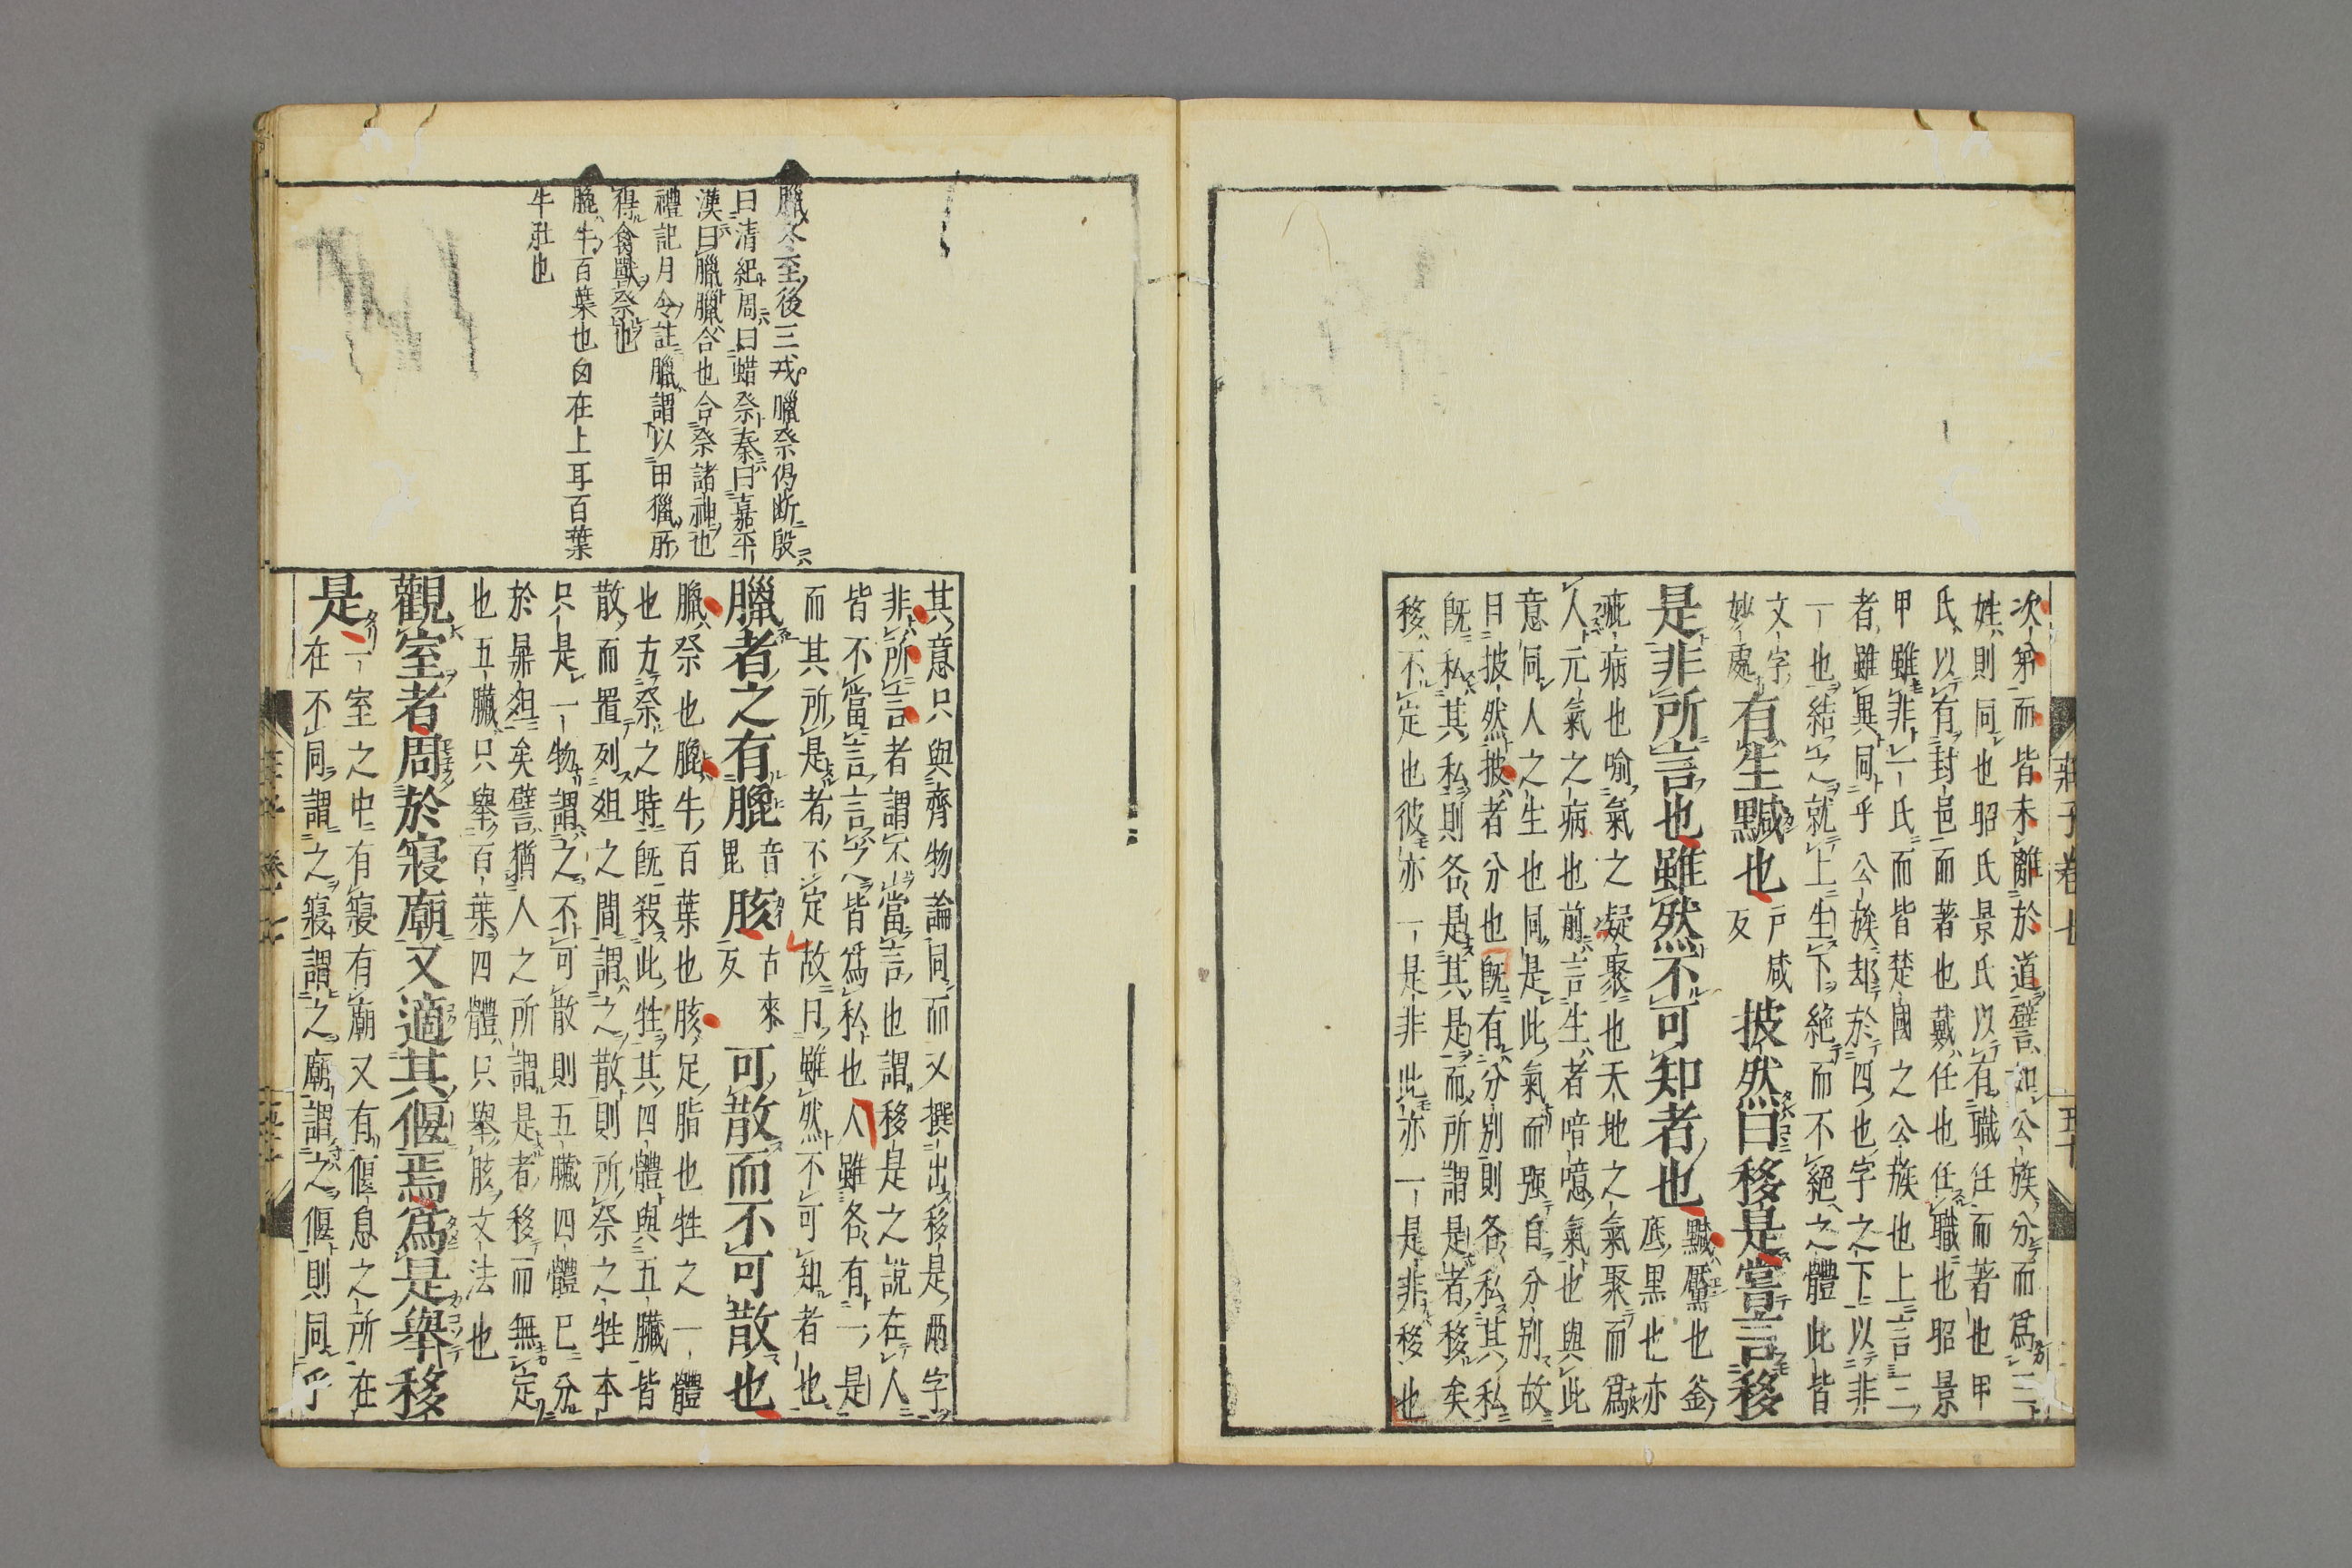 次第而皆未離於道譬如公族分而爲三
姓則同也昭氏景氏以有職任而著也甲
氏以有封邑而著也戴任也任職也昭景
甲雖非一氏而皆楚國之公族也上言三
者雖異同乎公族却於四也字之下以非
一也結之就上生下絶而不絕之體此皆
文字
妙處
有生黬也
戶咸
反
披然曰移是嘗言移
是非所言也雖然不可知者也
黬黶也釜
底黒也亦
疵病也喻氣之凝聚也天地之氣聚而爲
人元氣之病也前言生者喑噫氣也與此
意同人之生也同是此氣而强自分別故
曰披然披者分也既有分別則各私其私
既私其私則各是其是而所謂是者移矣
移不定也彼亦一是非此亦一是非移也
莊子卷七
五十
臘冬至後三戌臘祭仍断殷
曰清祀周曰蜡祭秦曰嘉平
漢曰臘臘合也合祭諸神也
禮記月令註臘謂以田獵所
得禽獸祭也
膍牛百葉也囟在上耳百葉
牛肚也
其意只與齊物論同而又撰出移是兩字
非所言者謂不當言也謂移是之說在人
皆不當言言之皆爲私也人雖各有一是
而其所是者不定故曰雖然不可知者也
臘者之有膍
音
毘
胲
古來
反
可散而不可散也
臘祭也膍牛百葉也胲足脂也牲之一體
也方祭之時既殺此牲其四體與五臟皆
散而置列俎之間謂之散則所祭之牲本
只是一物謂之不可散則五臟四體已分
於鼎俎矣譬猶人之所謂是者移而無定
也五臟只舉百葉四體只舉胲文法也
觀室者周於寢廟又適其偃焉爲是舉移
是
一室之中有寢有廟又有偃息之所在
在不同謂之寢謂之廟謂之偃則同乎